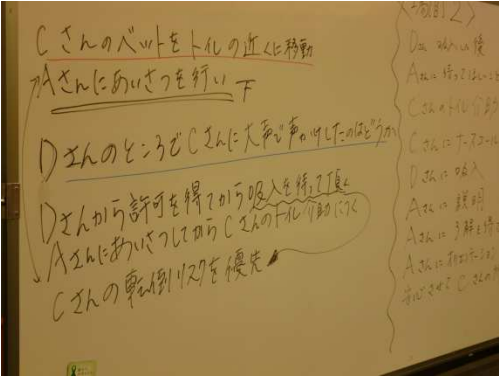 Cさんのベットをトイレの近くに移動
Aさんにあいさつを行い下
Dさんのところで Cさんに大声で声かけしたのはどうか
Dさんから許可を得てから吸入を待って頂く
Aさんにあいさつしてから Cさんのトイレ介助につく
Cさんの転倒リスクを優先
2〉
Aさんに待ってほしいこと
Cさんのトイレ介助
Cさんにナースコール
Dさんに吸入
Aさんに説明
Aさんに了解を得て
Aさんにオリエンテーション